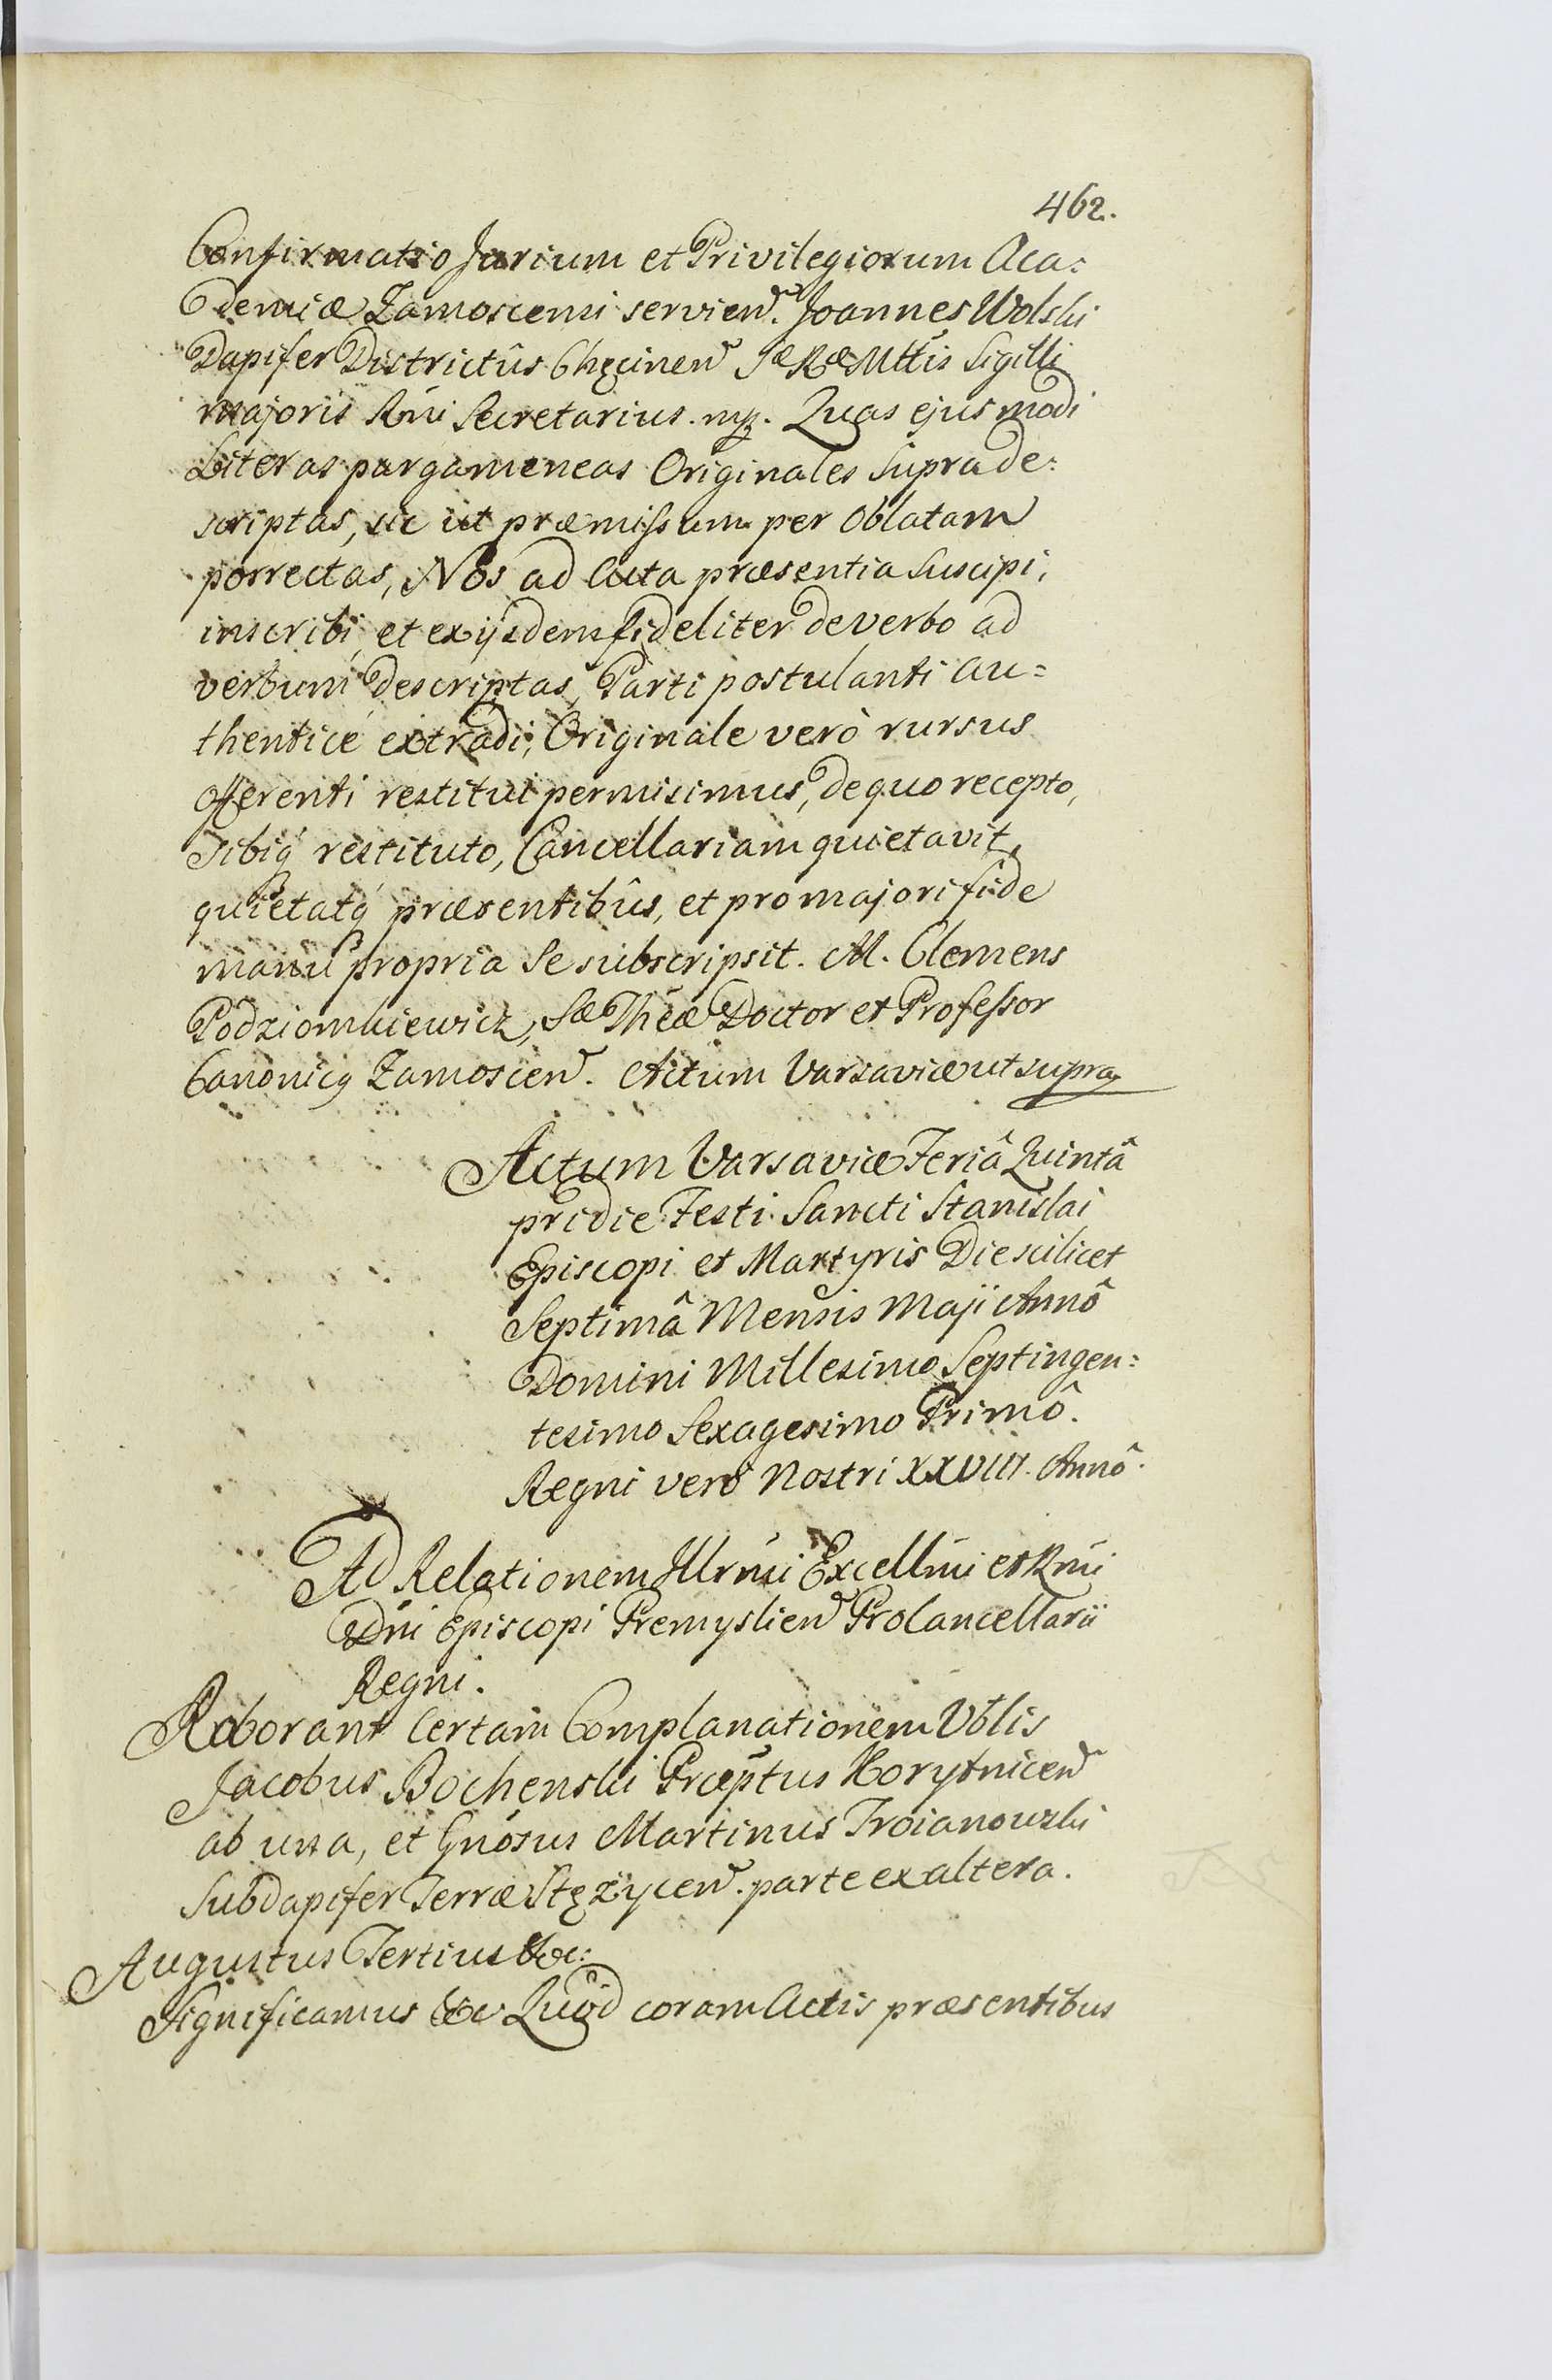 462.
Confirmatio Jurium et Privilegiorum Aca:
demiæ Zamoscensi servien. Joannes Wolski
Dapifer Districtûs Chęcinen SæRæMttis Sigilli
majoris Rńi Secretarius. mp. Quas ejusmodi
Literas pargameneas Originales Suprade:
scriptas, sic ut præmissum per Oblatam
porrectas, Nos ad Acta præsentia Suscipi,
inscribi, et exijsdem fideliter de verbo ad
verbum descriptas, Parti postulanti au=
thenticè extradi; Originale verò rursus
offerenti restitui permisimus, de quo recepto,
sibiq́ restituto, Cancellariam quietavit,
quietatq́ præsentibûs, et pro majori fide
manu propria Se subscripsit. M. Clemens
Podziomkiewicz, Sæ Thēæ Doctor et Professor
Canonicq Zamoscen. Actum Varsaviæ ut supra
Actum Varsaviæ Feriâ Quintâ
pridie Festi Sancti Stanislai
Episcopi et Martyris Die scilicet
Septimâ Mensis Maji Annô
Domini Millesimo Septingen:
tesimo Sexagesimo Primô.
Regni verò Nostri XXVIII. Annô.
Ad Relationem Illrmi Excellmi et Rmi
Dni Episcopi Premyslien ProCancellarii
Regni.
Roborant Certam Complanationem Vblis
Jacobus Bochenski Præptus Korytnicen
ab una, et Gnosus Martinus Troianowski
Subdapifer Terræ Stęzycen. parte ex altera.
Augustus Tertius &c:
Significamus &c Quod coram Actis præsentibus